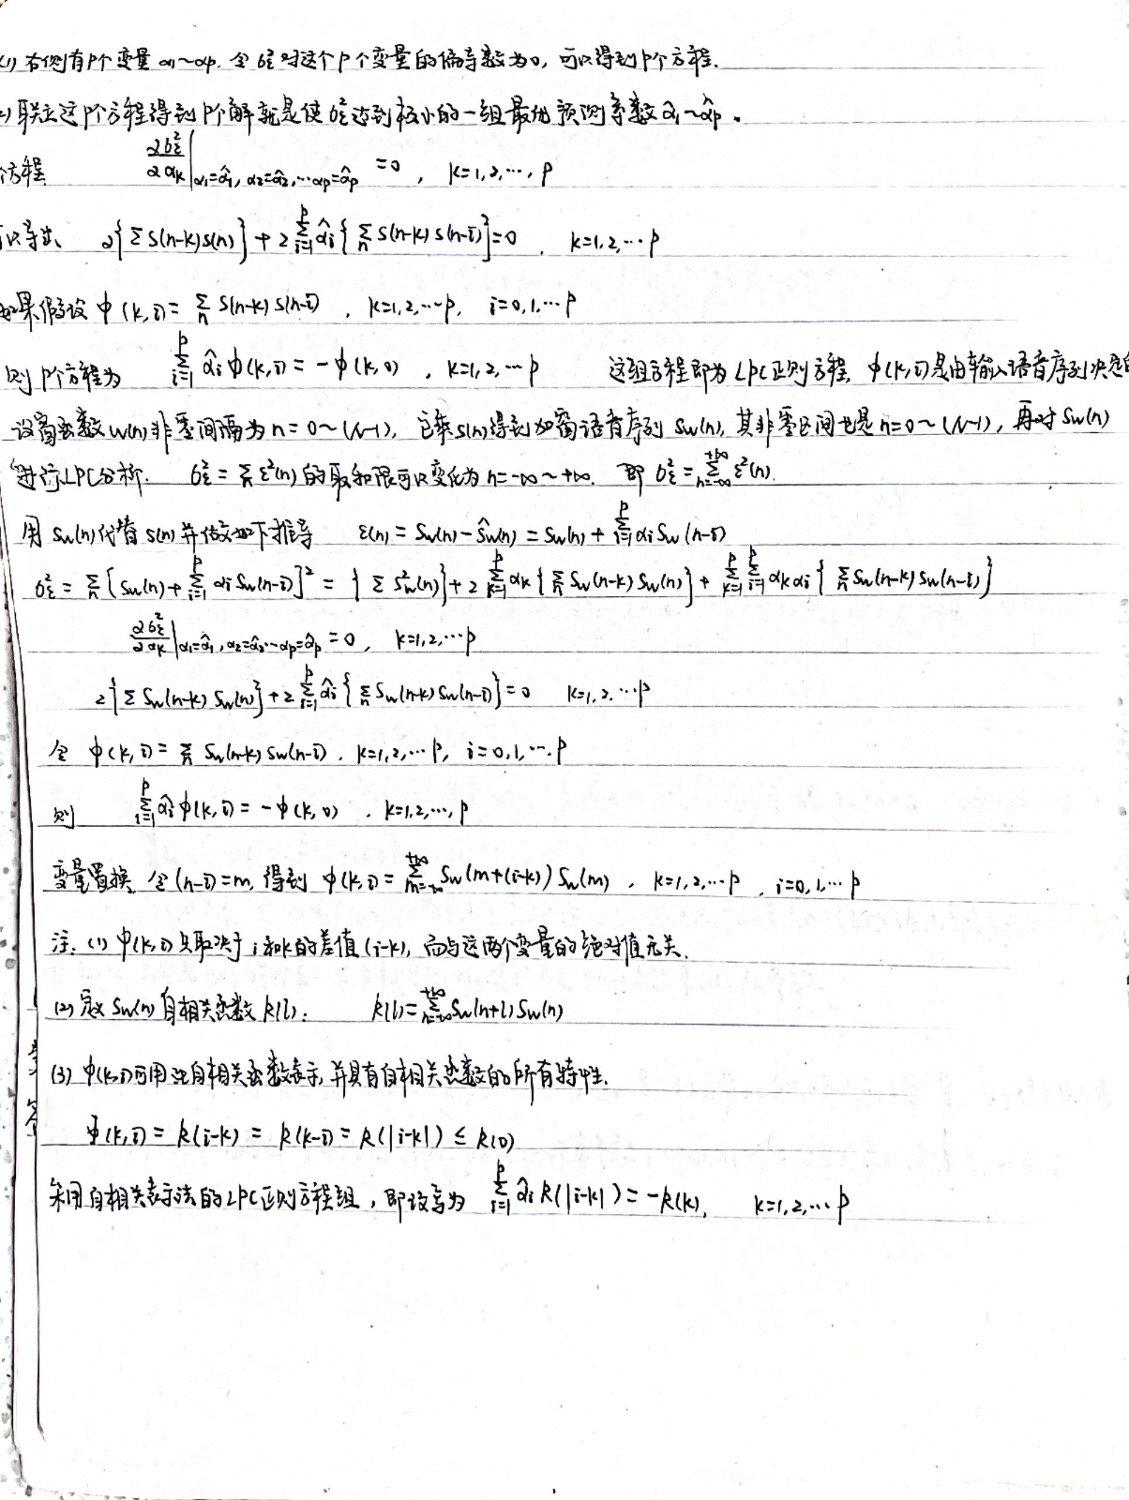 (1) 右侧有P个变量 α1~αp. 令 σε² 对这个P个变量的偏导数为0, 可以得到P个方程.
) 联立这P个方程得到P个解就是使σε²达到极小的一组最优预测系数 α̂1~α̂p 。
个方程 ∂σε²/∂αk |α1=α̂1, α2=α̂2, …αp=α̂p =0 , k=1,2,…, p
可以导出 2{Σ s(n-k)s(n)} + 2 Σ(i=1→p) α̂i {Σn s(n-k) s(n-i)} =0 , k=1,2,…p
如果假设 φ(k,i) = Σn s(n-k) s(n-i) , k=1,2,…p, i=0,1,…p
则 P个方程为 Σ(i=1→p) α̂i φ(k,i) = -φ(k,0) , k=1,2,…p 这组方程即为LPC正则方程, φ(k,i)是由输入语音序列决定的
设窗函数w(n)非零间隔为 n=0~(N-1), 它乘s(n)得到加窗语音序列 Sw(n), 其非零区间也是 n=0~(N-1), 再对 Sw(n)
进行LPC分析. σε² = Σn ε²(n) 的取和限可以变化为 n=-∞~+∞. 即 σε² = Σ(n=-∞→+∞) ε²(n).
用 Sw(n)代替 s(n) 并做如下推导 ε(n) = Sw(n) - Ŝw(n) = Sw(n) + Σ(i=1→p) αi Sw(n-i)
σε² = Σn [Sw(n) + Σ(i=1→p) αi Sw(n-i)]² = {Σ Sw²(n)} + 2 Σ(k=1→p) αk {Σn Sw(n-k) Sw(n)} + Σ(k=1→p) Σ(i=1→p) αk αi {Σn Sw(n-k) Sw(n-i)}
∂σε²/∂αk |α1=α̂1, α2=α̂2…αp=α̂p =0 , k=1,2,…p
2{Σ Sw(n-k) Sw(n)} + 2 Σ(i=1→p) α̂i {Σn Sw(n-k) Sw(n-i)} =0 k=1,2,…p
令 φ(k,i) = Σn Sw(n-k) Sw(n-i) , k=1,2,…p, i=0,1,…p
则 Σ(i=1→p) α̂i φ(k,i) = -φ(k,0) , k=1,2,…, p
变量置换, 令(n-i)=m, 得到 φ(k,i) = Σ(m=-∞→+∞) Sw(m+(i-k)) Sw(m) , k=1,2,…p , i=0,1,…p
注: (1) φ(k,i)只取决于i和k的差值(i-k), 而与这两个变量的绝对值无关.
(2) 定义 Sw(n) 自相关函数 R(l): R(l) = Σ(n=-∞→+∞) Sw(n+l) Sw(n)
(3) φ(k,i)可用此自相关函数表示, 并具有自相关函数的所有特性.
φ(k,i) = R(i-k) = R(k-i) = R(|i-k|) ≤ R(0)
采用自相关表示法的LPC正则方程组, 即改写为 Σ(i=1→p) α̂i R(|i-k|) = -R(k), k=1,2,…p